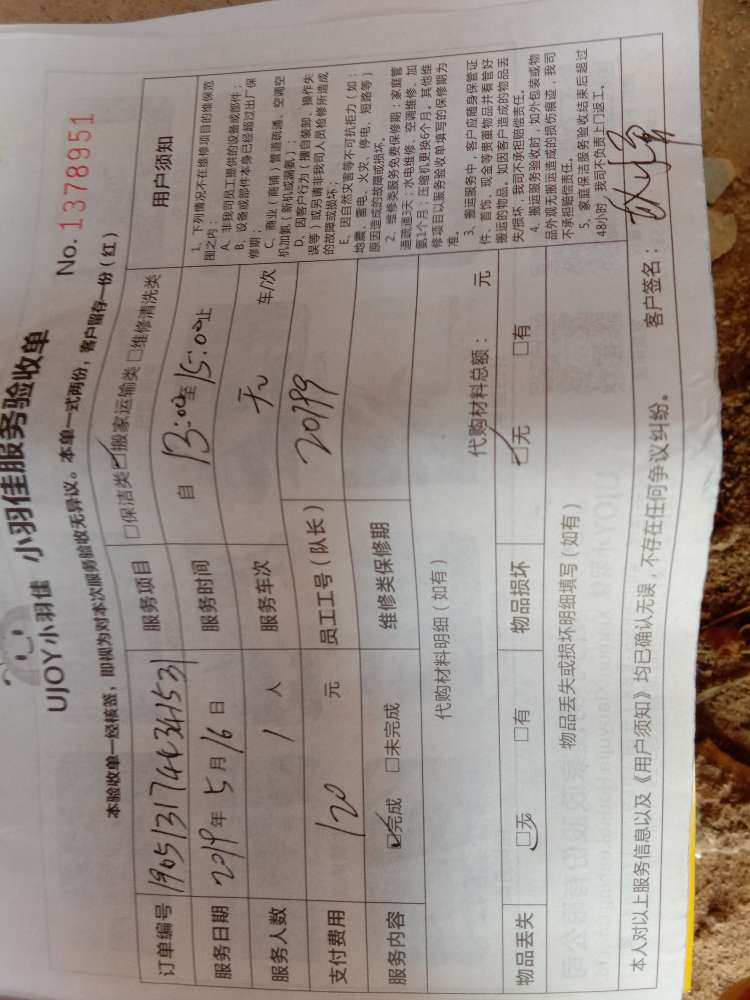 UJOY小羽佳 小羽佳服务验收单
No. 1378951
本验收单一经核签，即视为对本次服务验收无异议。本单一式两份，客户留存一份（红）
订单编号 190513174434153 服务项目 □保洁类 ☑搬家运输类 □维修清洗类
服务日期 2019 年 5 月 16 日 服务时间 自 13:00 至 15:00 止
服务人数 1 人 服务车次 无 车/次
支付费用 120 元 员工工号（队长） 20199
服务内容 ☑完成 □未完成 维修类保修期
代购材料明细（如有） 代购材料总额： 元
物品丢失 ☑无 □有 物品损坏 ☑无 □有
物品丢失或损坏明细填写（如有）
用户须知
1、下列情况不在维修项目的维保范
围之内：
A、非我司员工提供的设备或部件；
B、设备或部件本身已经超过出厂保
修期；
C、商业（商铺）管道疏通、空调空
机加氨（新机或漏氨）；
D、因客户行为（擅自装卸、操作失
误等）或另请非我司人员检修所造成
的故障或损坏；
E、因自然灾害等不可抗拒力（如：
地震、蓄电、火灾、停电、短路等）
原因造成的故障或损坏。
2、维修类服务免费保修期：家庭管
道疏通3天；水电维修、空调维修、加
氨1个月；压缩机更换6个月。其他维
修项目以服务验收单填写的保修期为
准。
3、搬运服务中，客户应随身保管证
件、首饰、现金等贵重物品并看管好
搬运的物品，如因客户造成的物品丢
失/损坏，我司不承担赔偿责任。
4、搬运服务验收时，如外包装或物
品外观无搬运造成的损伤痕迹，我司
不承担赔偿责任。
5、家庭保洁服务验收结束后超过
48小时，我司不负责上门返工。
本人对以上服务信息以及《用户须知》均已确认无误，不存在任何争议纠纷。 客户签名：